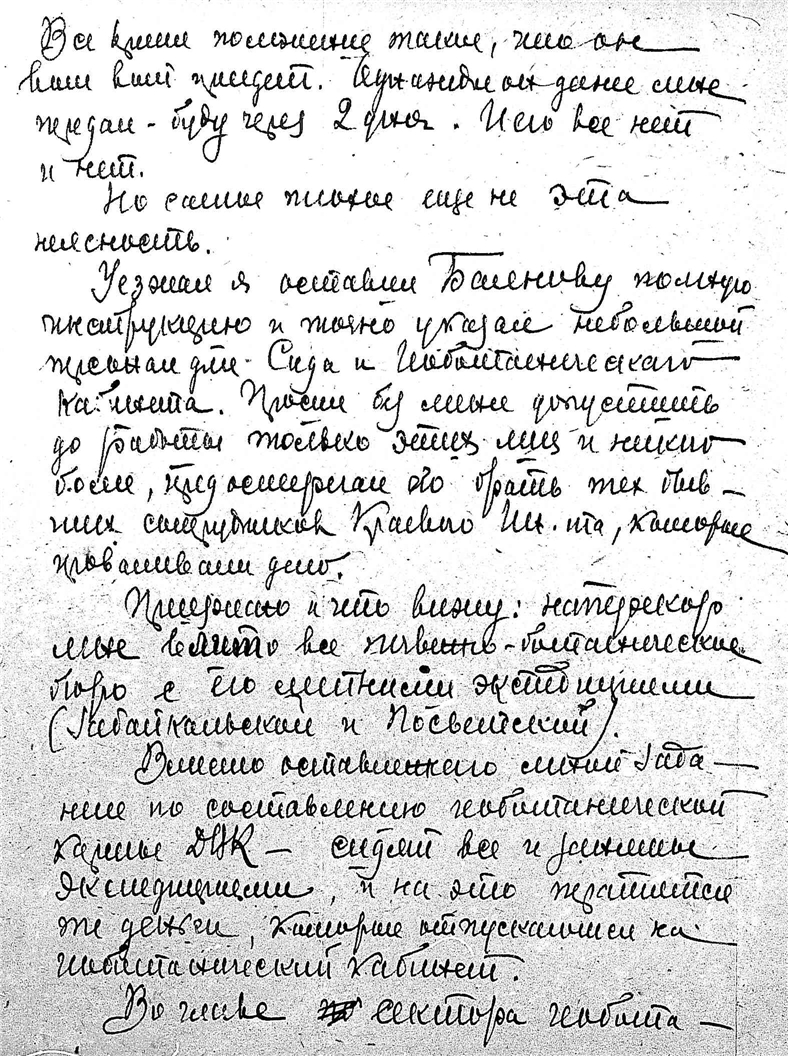 Все время положение такое, что он
вот вот приедет. Однажды он даже мне
передал - буду через 2 дня. И его все нет
и нет.
Но самое плохое еще не эта
неясность.
Уезжая я оставил Баженову полную
инструкцию и точно указал небольшой
персонал для Сада и Геоботанического
Кабинета. Просил без меня допустить
до работы только этих лиц и никого
более, предостерегал его брать тех быв-
ших сотрудников Краевого Ин-та, которые
проваливали дело.
Приезжаю и что вижу: наперекор
мне взято все почвенно-ботаническое
бюро с его летними экспедициями
(Забайкальской и Посьетской).
Вместо оставленного мной зада-
ния по составлению геоботанической
карты ДВК - сидят все и заняты
экспедициями, и на это тратятся
те деньги, которые отпускались на
геоботанический кабинет.
Во главе сектора геобота-